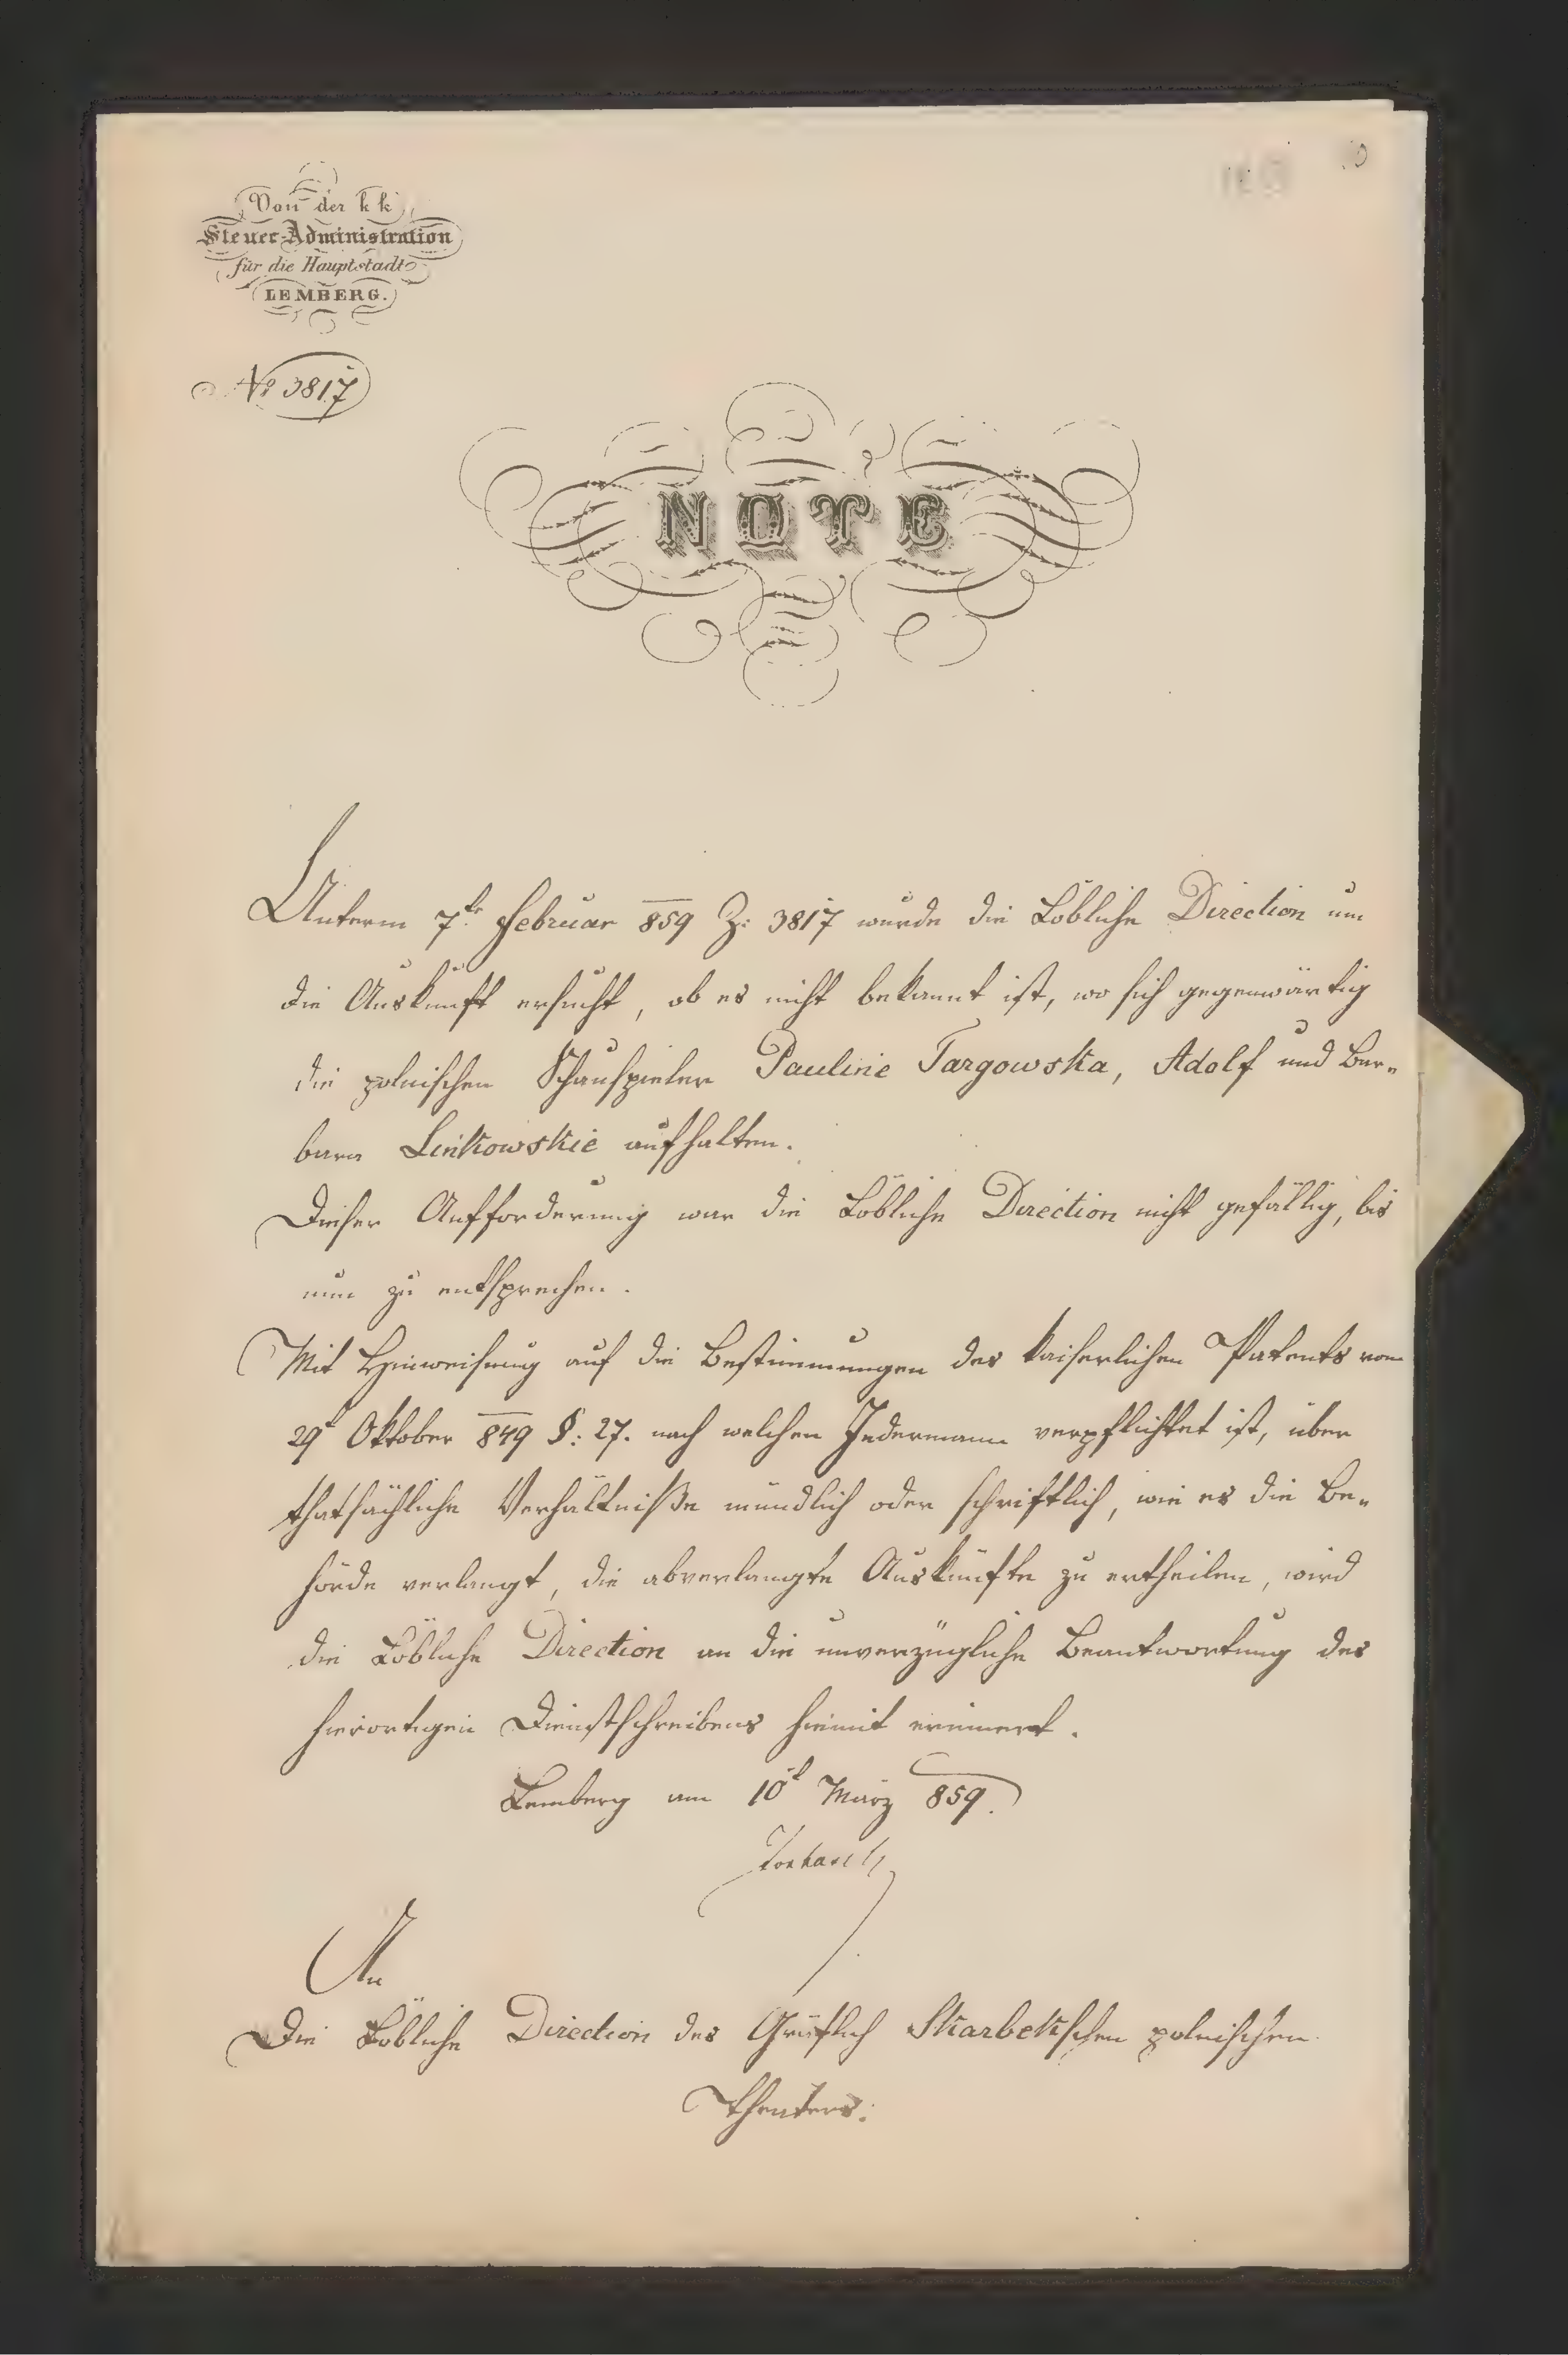 Von der k k
Steuer-Administration
für die Hauptstadt
LEMBERG.
No 3817
NOTE
Unterm 7ten Februar 859 Z: 3817 wurde die Löbliche Direction um
die Auskunft ersucht, ob es nicht bekannt ist, wo sich gegenwärtig
die polnischen Schauspieler Pauline Targowska, Adolf und Bar-
bara Linkowskie aufhalten.
Dieser Aufforderung war die Löbliche Direction nicht gefällig, bis
nun zu entsprechen.
Mit Hinweisung auf die Bestimmungen des kaiserlichen Patents vom
29t Oktober 849 §: 27. nach welchen Jedermann verpflichtet ist, über
thatsächliche Verhältniße mündlich oder schriftlich, wie es die Be-
hörde verlangt, die abverlangte Auskünfte zu ertheilen, wird
die Löbliche Direction an die unverzügliche Beantwortung des
hierortigen Dienstschreibens hiemit erinnert.
Lemberg am 10t März 859.
An
Die Löbliche Direction des Gräflich Skarbekschen polnischen
Theaters.